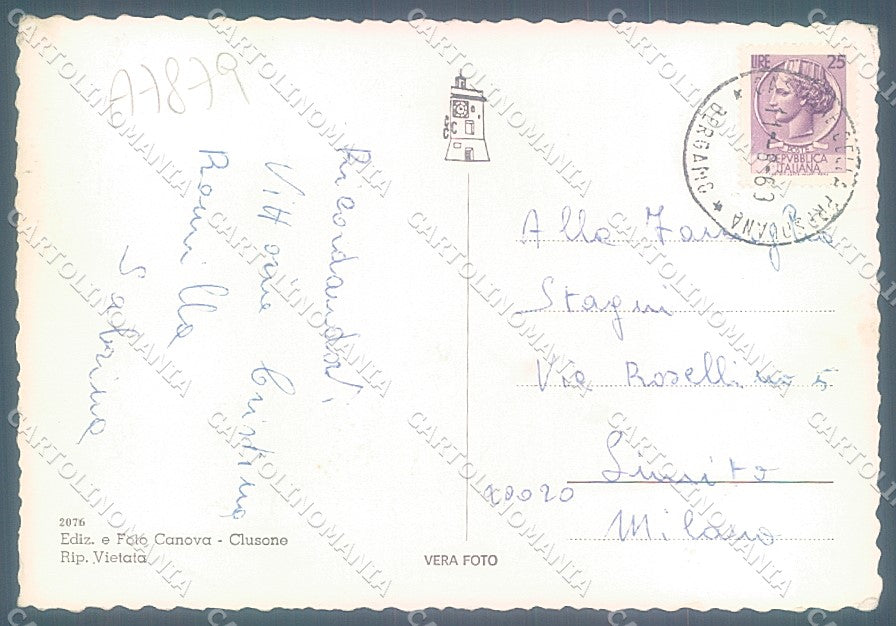 A7879
Ricordandovi
Vittorio Cristina
Romilla
Sabrina
2076
Ediz. e Foto Canova - Clusone
Rip. Vietata
VERA FOTO
LIRE 25
POSTE
REPVBBLICA
ITALIANA
BERGAMO
Alla Famiglia
Stagni
Via Rosellini 5
20020
Milano
CARTOLINOMANIA